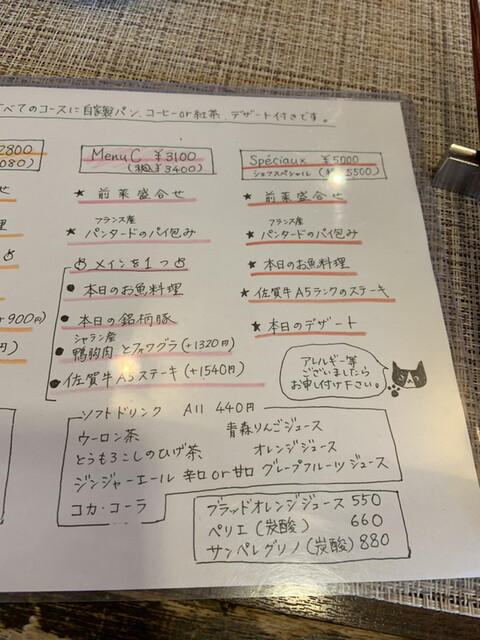 べてのコースに自家製パン、コーヒーor紅茶、デザート付きです。
2800
080)
せ
理
+900円)
円)
Menu C ¥3100
(税込 ¥3400)
★ 前菜盛合せ
フランス産
★ パンタードのパイ包み
メインを1つ
● 本日のお魚料理
● 本日の銘柄豚
シャラン産
● 鴨胸肉とフォワグラ (+1320円)
● 佐賀牛A5ステーキ (+1,540円)
Spéciaux ¥5000
シェフスペシャル (税込 5500)
★ 前菜盛合せ
フランス産
★ パンタードのパイ包み
★ 本日のお魚料理
★ 佐賀牛A5ランクのステーキ
★ 本日のデザート
アレルギー等
ございましたら
お申し付け下さい。
ソフトドリンク All 440円
ウーロン茶 青森りんごジュース
とうもろこしのひげ茶 オレンジジュース
ジンジャーエール 辛口or甘口 グレープフルーツジュース
コカ・コーラ
ブラッドオレンジジュース 550
ペリエ (炭酸) 660
サンペレグリノ (炭酸) 880